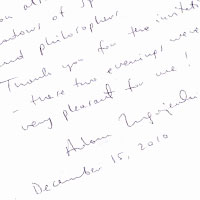 on al
adows of sp
and philosophers
Thank you for the invitati
- these two evenings were
very pleasant for me!
Adam
December 15, 2010